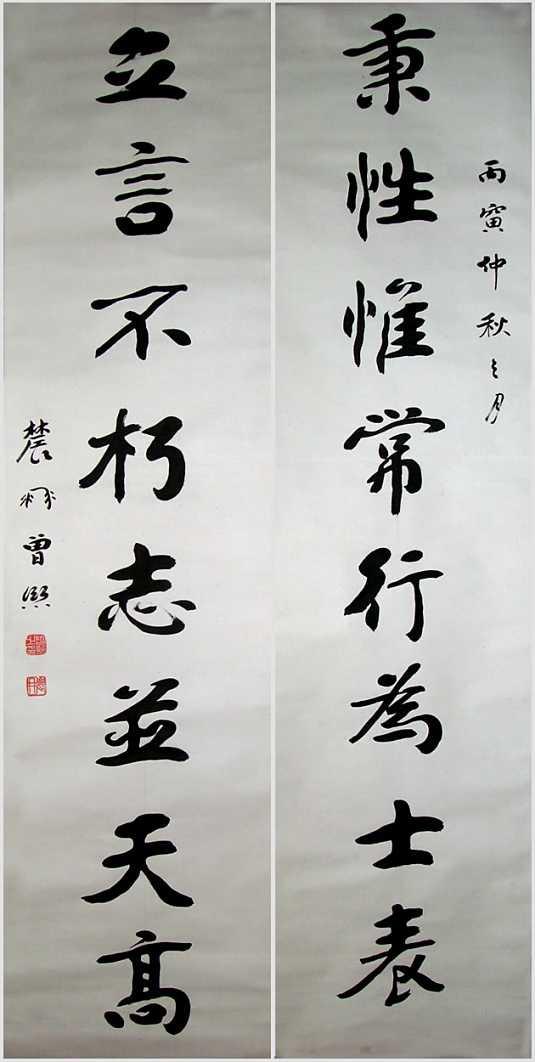 丙寅仲秋之月
秉性惟常行為士表
立言不朽志並天高
辳髯曾熙